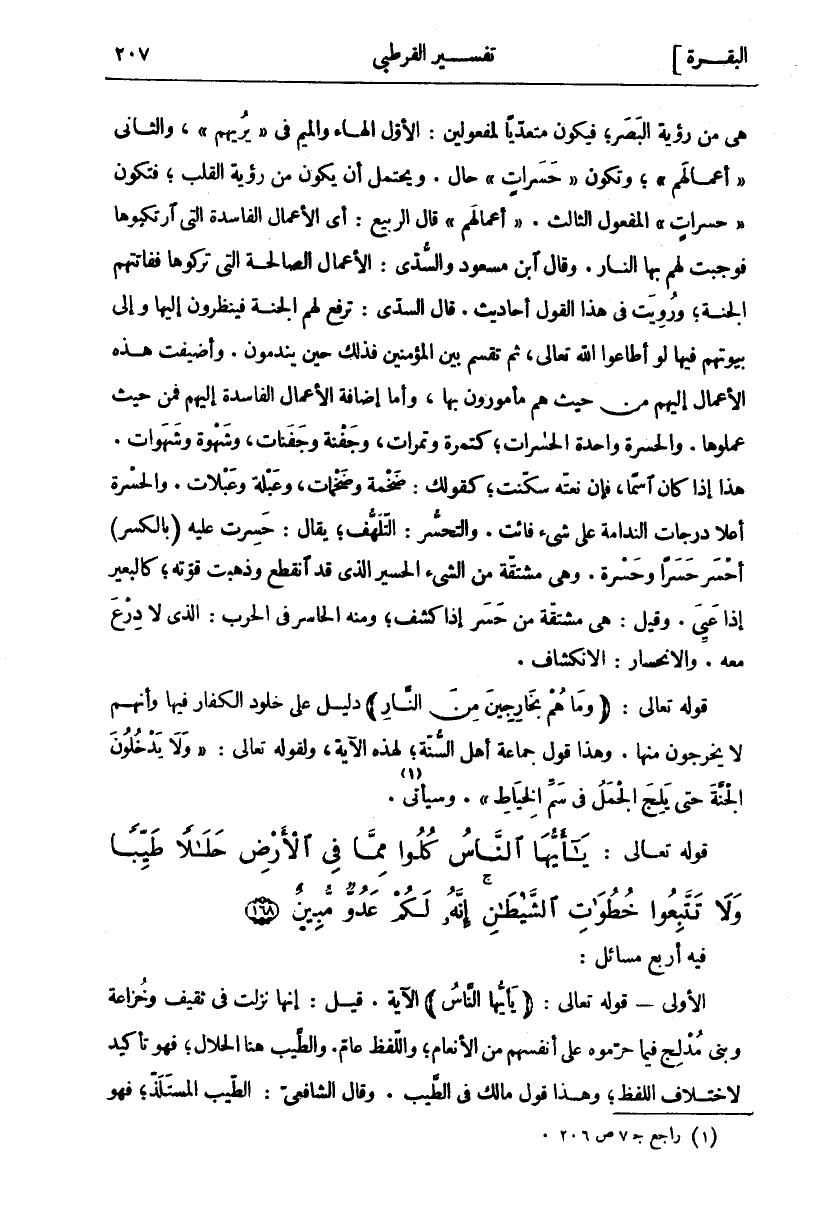 البقـــرة ]
تفســـير القرطبي
٢٠٧
هى من رؤية البَصَر؛ فيكون متعدّيًا لمفعولين : الأوّل الهــاء والميم فى « يُريهم » ، والثـانى
« أعمــالَهم » ؛ وتكون « حَسَراتٍ » حال . ويحتمل أن يكون من رؤية القلب ؛ فتكون
« حسراتٍ » المفعول الثالث . « أعمالَهم » قال الربيع : أى الأعمال الفاسدة التى ٱرتكبوها
فوجبت لهم بها النـار . وقال ٱبن مسعود والسُّدّى : الأعمال الصالحـة التى تركوها ففاتتهم
الجنـة؛ ورُوِيَت فى هذا القول أحاديث . قال السدّى : ترفع لهم الجنـة فينظرون إليها وإلى
بيوتهم فيها لو أطاعوا الله تعالى، ثم تقسم بين المؤمنين فذلك حين يندمون . وأضيفت هـذه
الأعمال إليهم من حيث هم مأمورون بها ، وأما إضافة الأعمال الفاسدة إليهم فمن حيث
عملوها . والحسرة واحدة الحسَرات؛ كتمرة وتمرات، وجَفْنة وجَفَنات، وشَهْوة وشَهَوات .
هذا إذا كان ٱسمًا، فإن نعتّه سكّنت؛ كقولك : ضَخْمة وضَخْمات، وعَبْلة وعَبْلات . والحَسْرة
أعلا درجات الندامة على شىء فائت . والتحسُّر : التّلَهُّف؛ يقال : حَسِرت عليه (بالكسر)
أحْسَر حَسَرًا وحَسْرة . وهى مشتقّة من الشىء الحسير الذى قد ٱنقطع وذهبت قوّته؛ كالبعير
إذا عَيِيَ . وقيل : هى مشتقّة من حَسَر إذا كشف؛ ومنه الحاسر فى الحرب : الذى لا دِرْعَ
معه . والانحسار : الانكشاف .
قوله تعالى : ﴿ وَمَا هُمْ بِخَارِجِينَ مِنَ النَّارِ﴾ دليـل على خلود الكفار فيها وأنهـم
لا يخرجون منها . وهذا قول جماعة أهل السُّنّة؛ لهذه الآية، ولقوله تعالى : « وَلَا يَدْخُلُونَ
الْجَنَّةَ حتى يَلِجَ الْجَمَلُ فى سَمِّ الْخِيَاطِ » . وسيأتى (١) .
قوله تعـالى : يَـٰٓأَيُّهَا ٱلنَّـاسُ كُلُوا مِمَّا فِى ٱلْأَرْضِ حَلَـٰلًا طَيِّبًا
وَلَا تَتَّبِعُوا خُطُوَٰتِ ٱلشَّيْطَـٰنِۚ إِنَّهُۥ لَكُمْ عَدُوٌّ مُّبِينٌ ١٦٨
فيه أربع مسائل :
الأولى — قوله تعالى : ﴿ يَأَيُّهَا النَّاسُ ﴾ الآية . قيـل : إنها نزلت فى ثقيف وخُزاعة
وبنى مُدْلِج فيما حرّموه على أنفسهم من الأنعام؛ واللّفظ عامّ. والطَّيب هنا الحلال؛ فهو تأكيد
لاختـلاف اللفظ؛ وهـذا قول مالك فى الطَّيب . وقال الشافعىّ : الطّيب المستَلَذّ؛ فهو
(١) راجع جـ ٧ ص ٢٠٦ .